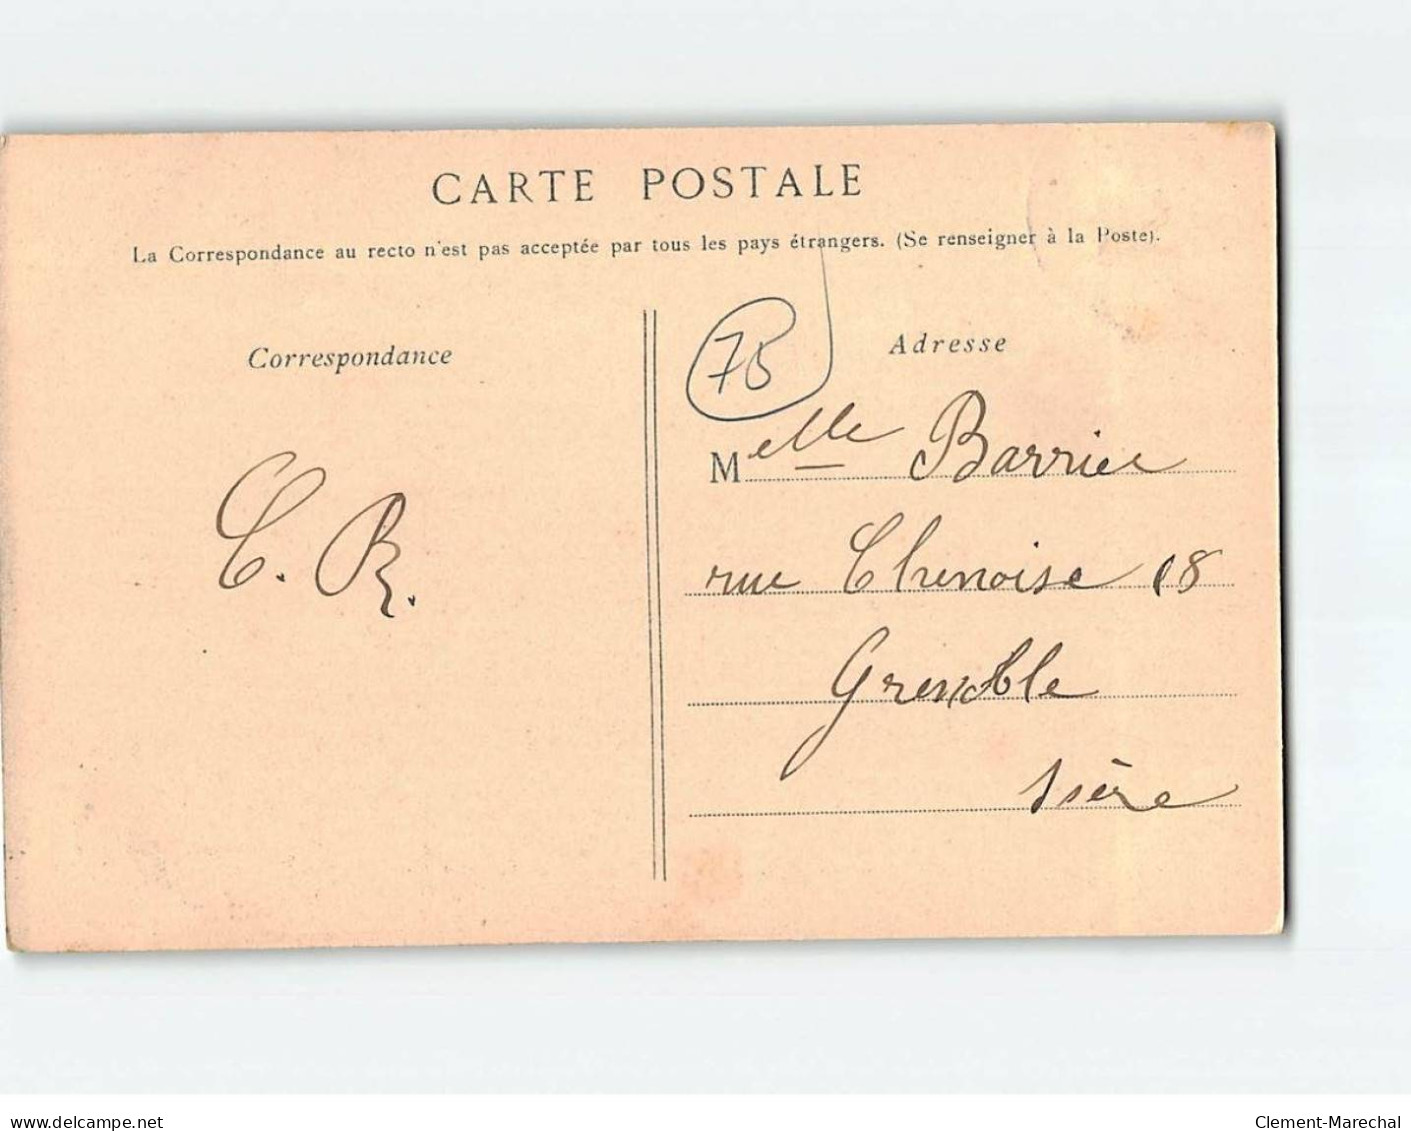 CARTE POSTALE
La Correspondance au recto n'est pas acceptée par tous les pays étrangers. (Se renseigner à la Poste).
Correspondance
C. R.
75
Adresse
Melle Barrier
rue Chenoise 18
Grenoble
Isère
www.delcampe.net
Clement-Marechal